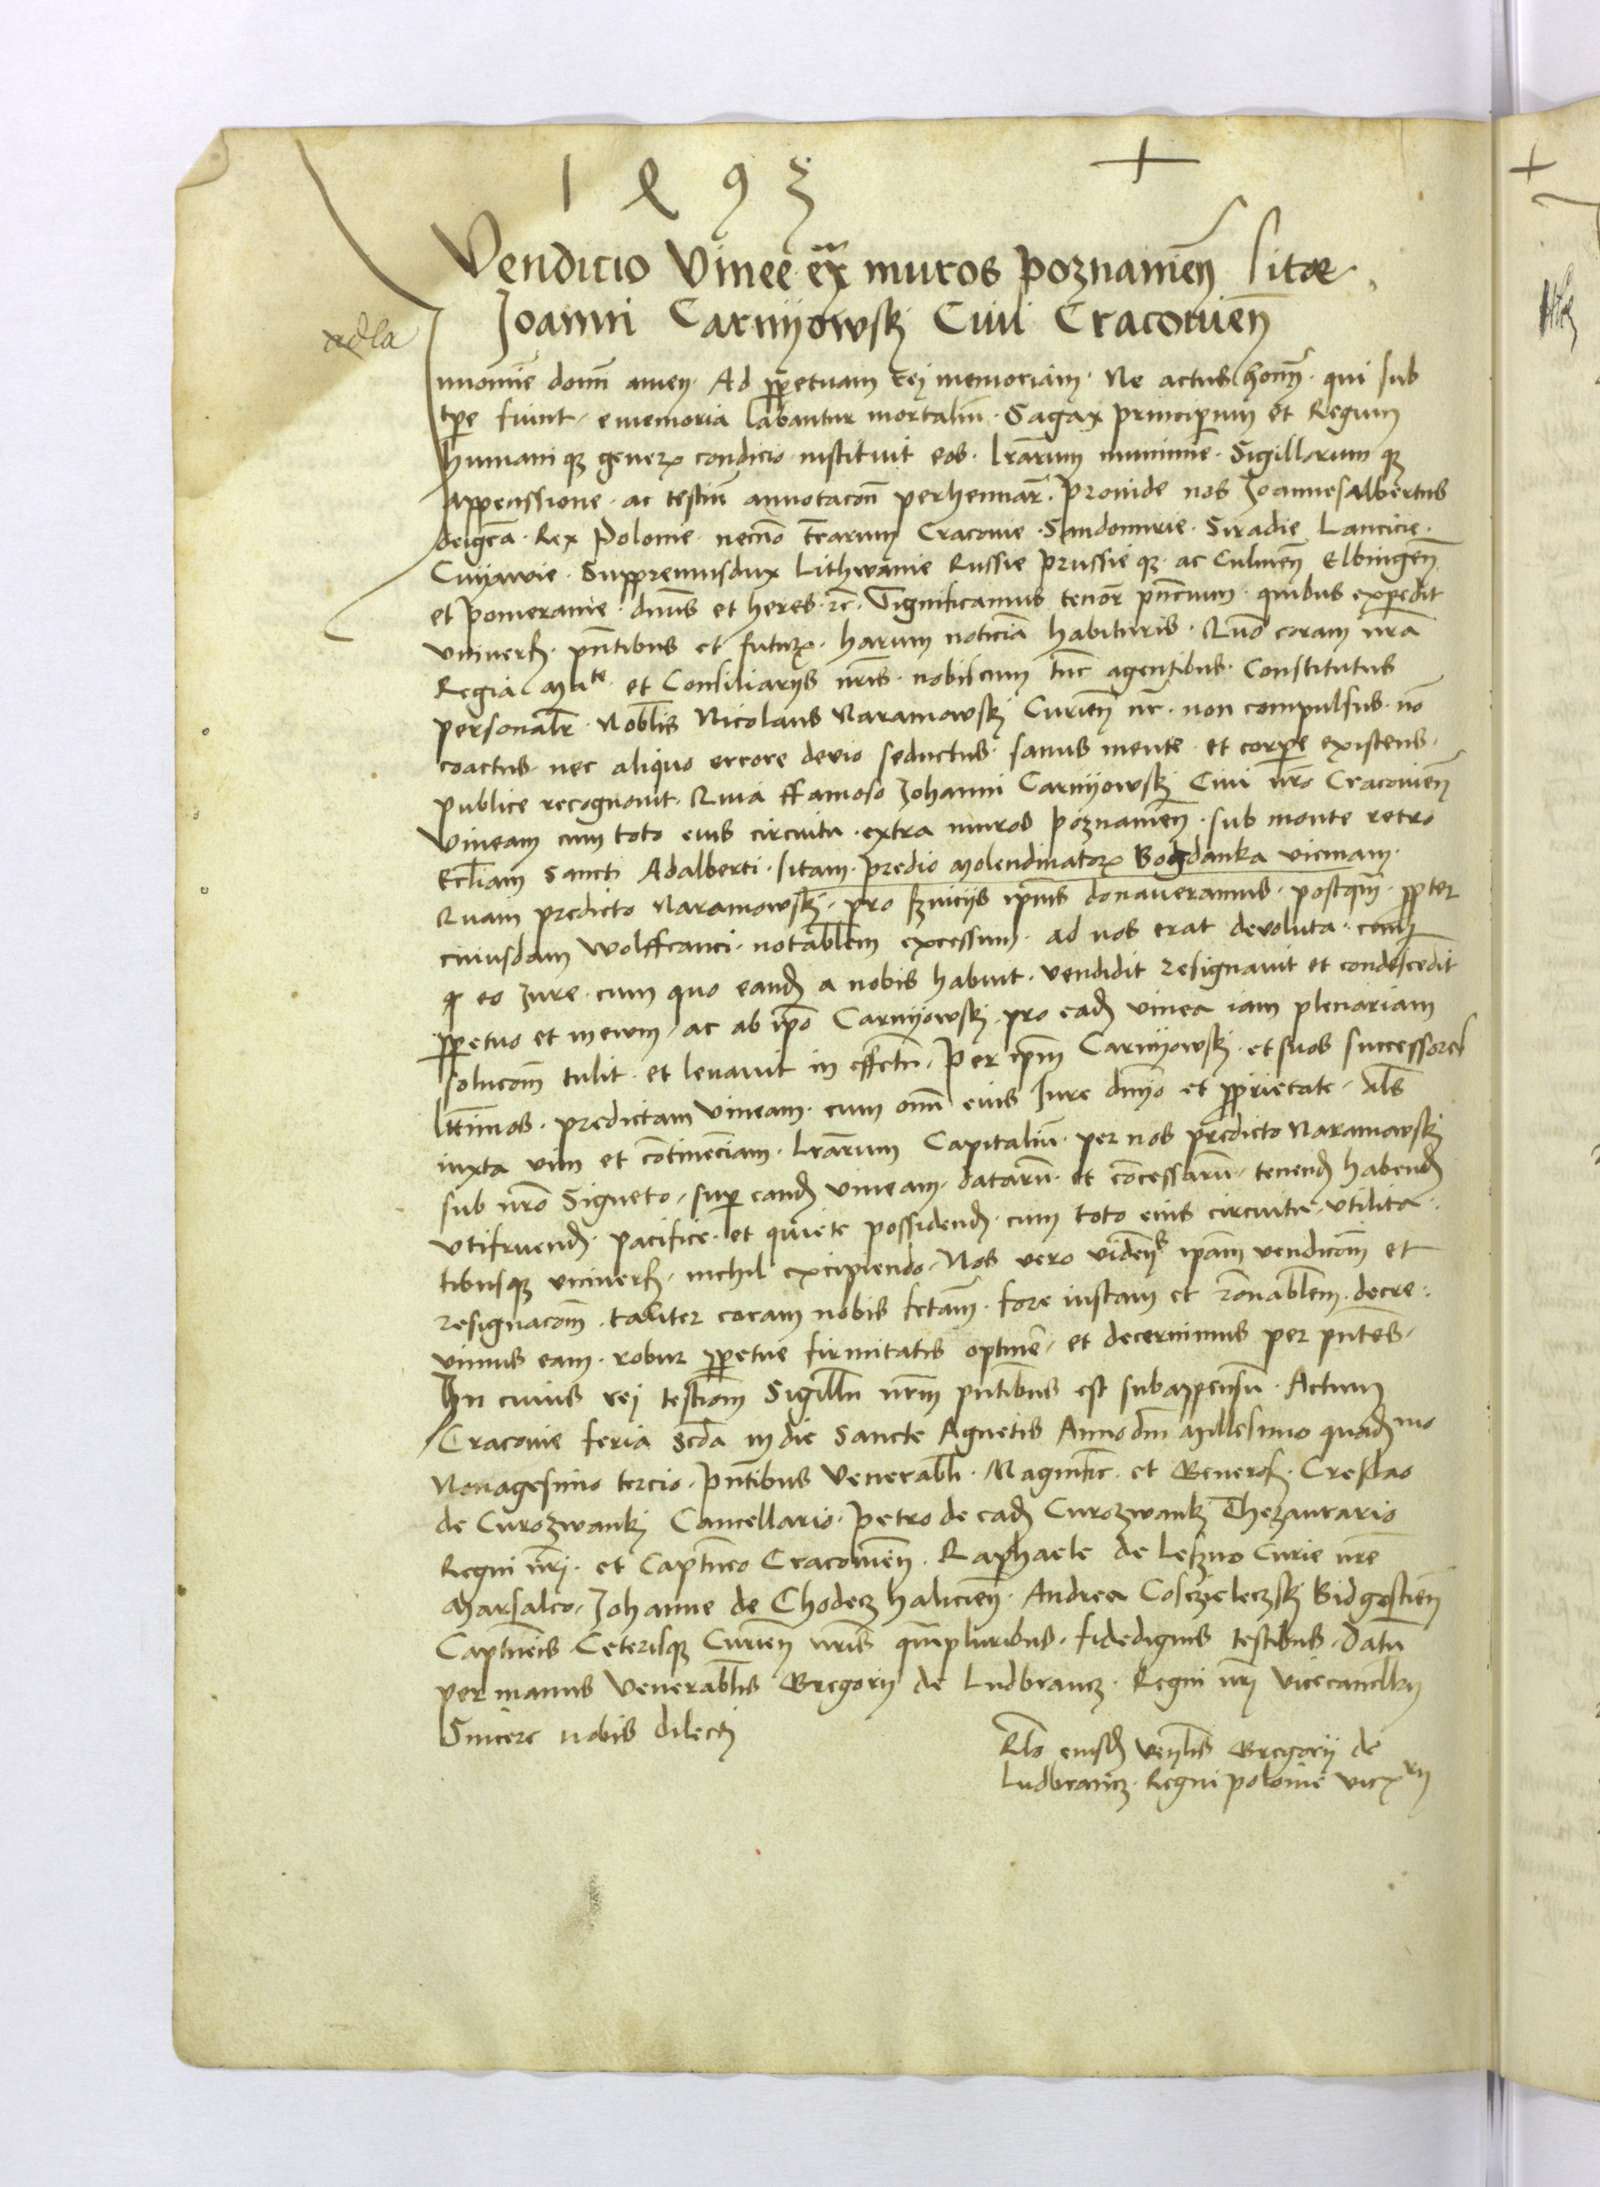 1493
Vendicio Vinee ex̄ muros poznanien̄ sitæ
Joanni Carnijowskj Ciui Cracouien̄
adla
In noīne domī amen · Ad ꝑpetuam rej memoriam · Ne actus hoīm̄ · qui sub
tp̄e fiunt · e memoria labantur mortaliū · Sagax principum et Regum
humaniqꝫ generꝫ condicio instituit eos · lr̄arum muniminē · Sigillorumqꝫ
appenssione · ac testiū annotacōn perhennar̄ · Proinde nos Joannes Albertus
deigr̄a · Rex Polonie · necnō tr̄arum Cracouie · Sandomirie · Siradie Lancicie ·
Cuijawie · Suppremusdux Lithwanie Russie Prussieqꝫ · ac Culmen̄ Elbingen̄
et Pomeranie · dnūs et heres ꝛc̄ · Significamus tenor̄ pn̄cium · quibus expedit
vniuersꝫ · pn̄tibus et futurꝫ · harum noticiā habituris · Quō coram nr̄a
Regia Mᵗᵉ · et Consiliarijs nr̄is · nobiscum tn̄c agentibus · Constitutus
personalr̄ · Nobl̄is Nicolaus Naramowskj Curien̄ nr̄ · non compulsus · nō
coactus · nec aliquo errore deuio seductus · sanus mente · et corpe existens ·
publice recognouit · Quia ffamoso Johanni Carnijowskj Ciui nr̄o Cracouien̄
Vineam cum toto eius circuitu · extra muros poznanien̄ · sub monte retro
Eccl̄iam Sancti Adalberti · sitam · predio Molendinatorꝫ Bogdanka vicinam ·
Quam predicto Naramowskj · pro ẜuicijs ipīus donaueramus · postqm̄ · ꝓpter
cuiusdam Wolffranci · notablem excessum · ad nos erat deuoluta ·
eo Jure · cum quo eandꝫ a nobis habuit · vendidit resignauit et condescedit
ꝑpetuo et in ewm · ac ab ip̄o Carnijowskj · pro eadꝫ vinea iam plenariam
solucōm tulit · et leuauit in effectu · Per ip̄m Carnijowskj · et suos successores
ltt̄imos · predictam Vineam · cum omī eius Jure dm̄o et ꝓprietate · als̄
iuxta vim et cōtinēciam · lr̄arum Capitaliū · per nos predicto Naramowskj
sub nr̄o Signeto · sup eandꝫ vineam · datarū · et cōcessarū · tenendꝫ habendꝫ
vtifruendꝫ · pacifice · et quiete possidendꝫ · cum toto eius circuitu · vtilita ·
tibusqꝫ vniuersꝫ · nichil excipiendo · Nos vero viden̄s ip̄am vendicōm et
resignacōm · taliter coram nobis fctām · fore iustam et rōnablem · decre ·
uimus eam · robur ꝑpetue firmitatis optinē · et decernimus per pn̄tes ·
In cuius rej testiōm Sigillū nr̄m pn̄tibus est subappensū · Actum
Cracouie feria scd̄a in die Sancte Agnetis Anno dnī Millesimo quadꝫᵐᵒ
Nonagesimo tercio · Pn̄tibus Venerabl̄i · Magnific · et Generosꝫ · Creslao
de Curozwankj Cancellario · Petro de eadꝫ Curozwankj Thezaurario
Regni nr̄j · et Captneo Cracouien̄ · Raphaele de Leszno Curie nr̄e
Marsalco · Johanne de Chodecz halicien̄ · Andrea Cosczieleczskj Bidgostien̄
Captneis Ceterisqꝫ Curien̄ nr̄is qm̄pluribus · fidedignis testibus · Datū
per manus Venerabl̄is Gregorij de Ludbrancz · Regni nr̄j Vicecancllrij
Sincere nobis dilectj
Rl̄o eiusdꝫ ven̄lis Gregorij de
Ludbrancz · Regni polonie vic